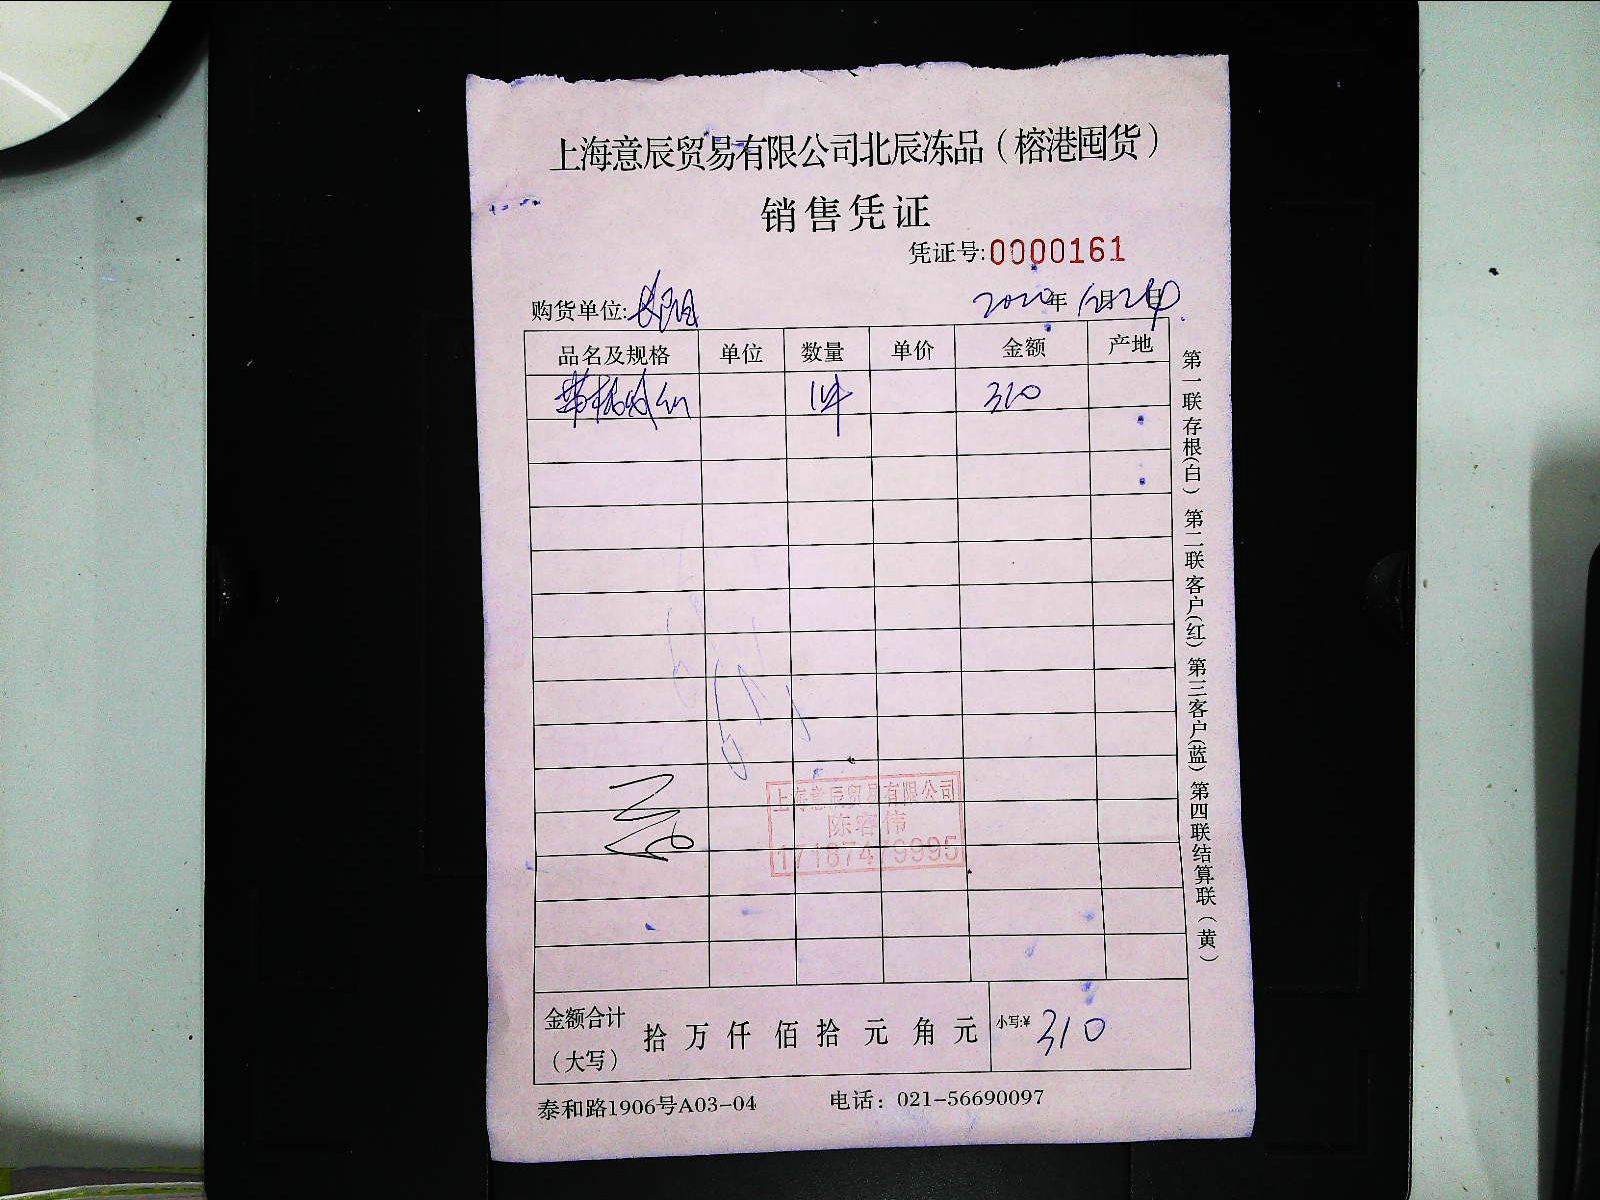 上海意辰贸易有限公司北辰冻品（榕港囤货）
销售凭证
凭证号:0000161
购货单位:
2020年 12月 日
品名及规格 单位 数量 单价 金额 产地
1件 310
第一联存根(白) 第二联客户(红) 第三客户(蓝) 第四联结算联(黄)
上海意辰贸易有限公司
陈容伟
17187479995
金额合计 拾 万 仟 佰 拾 元 角 元 小写:¥ 310
（大写）
泰和路1906号A03-04 电话：021-56690097